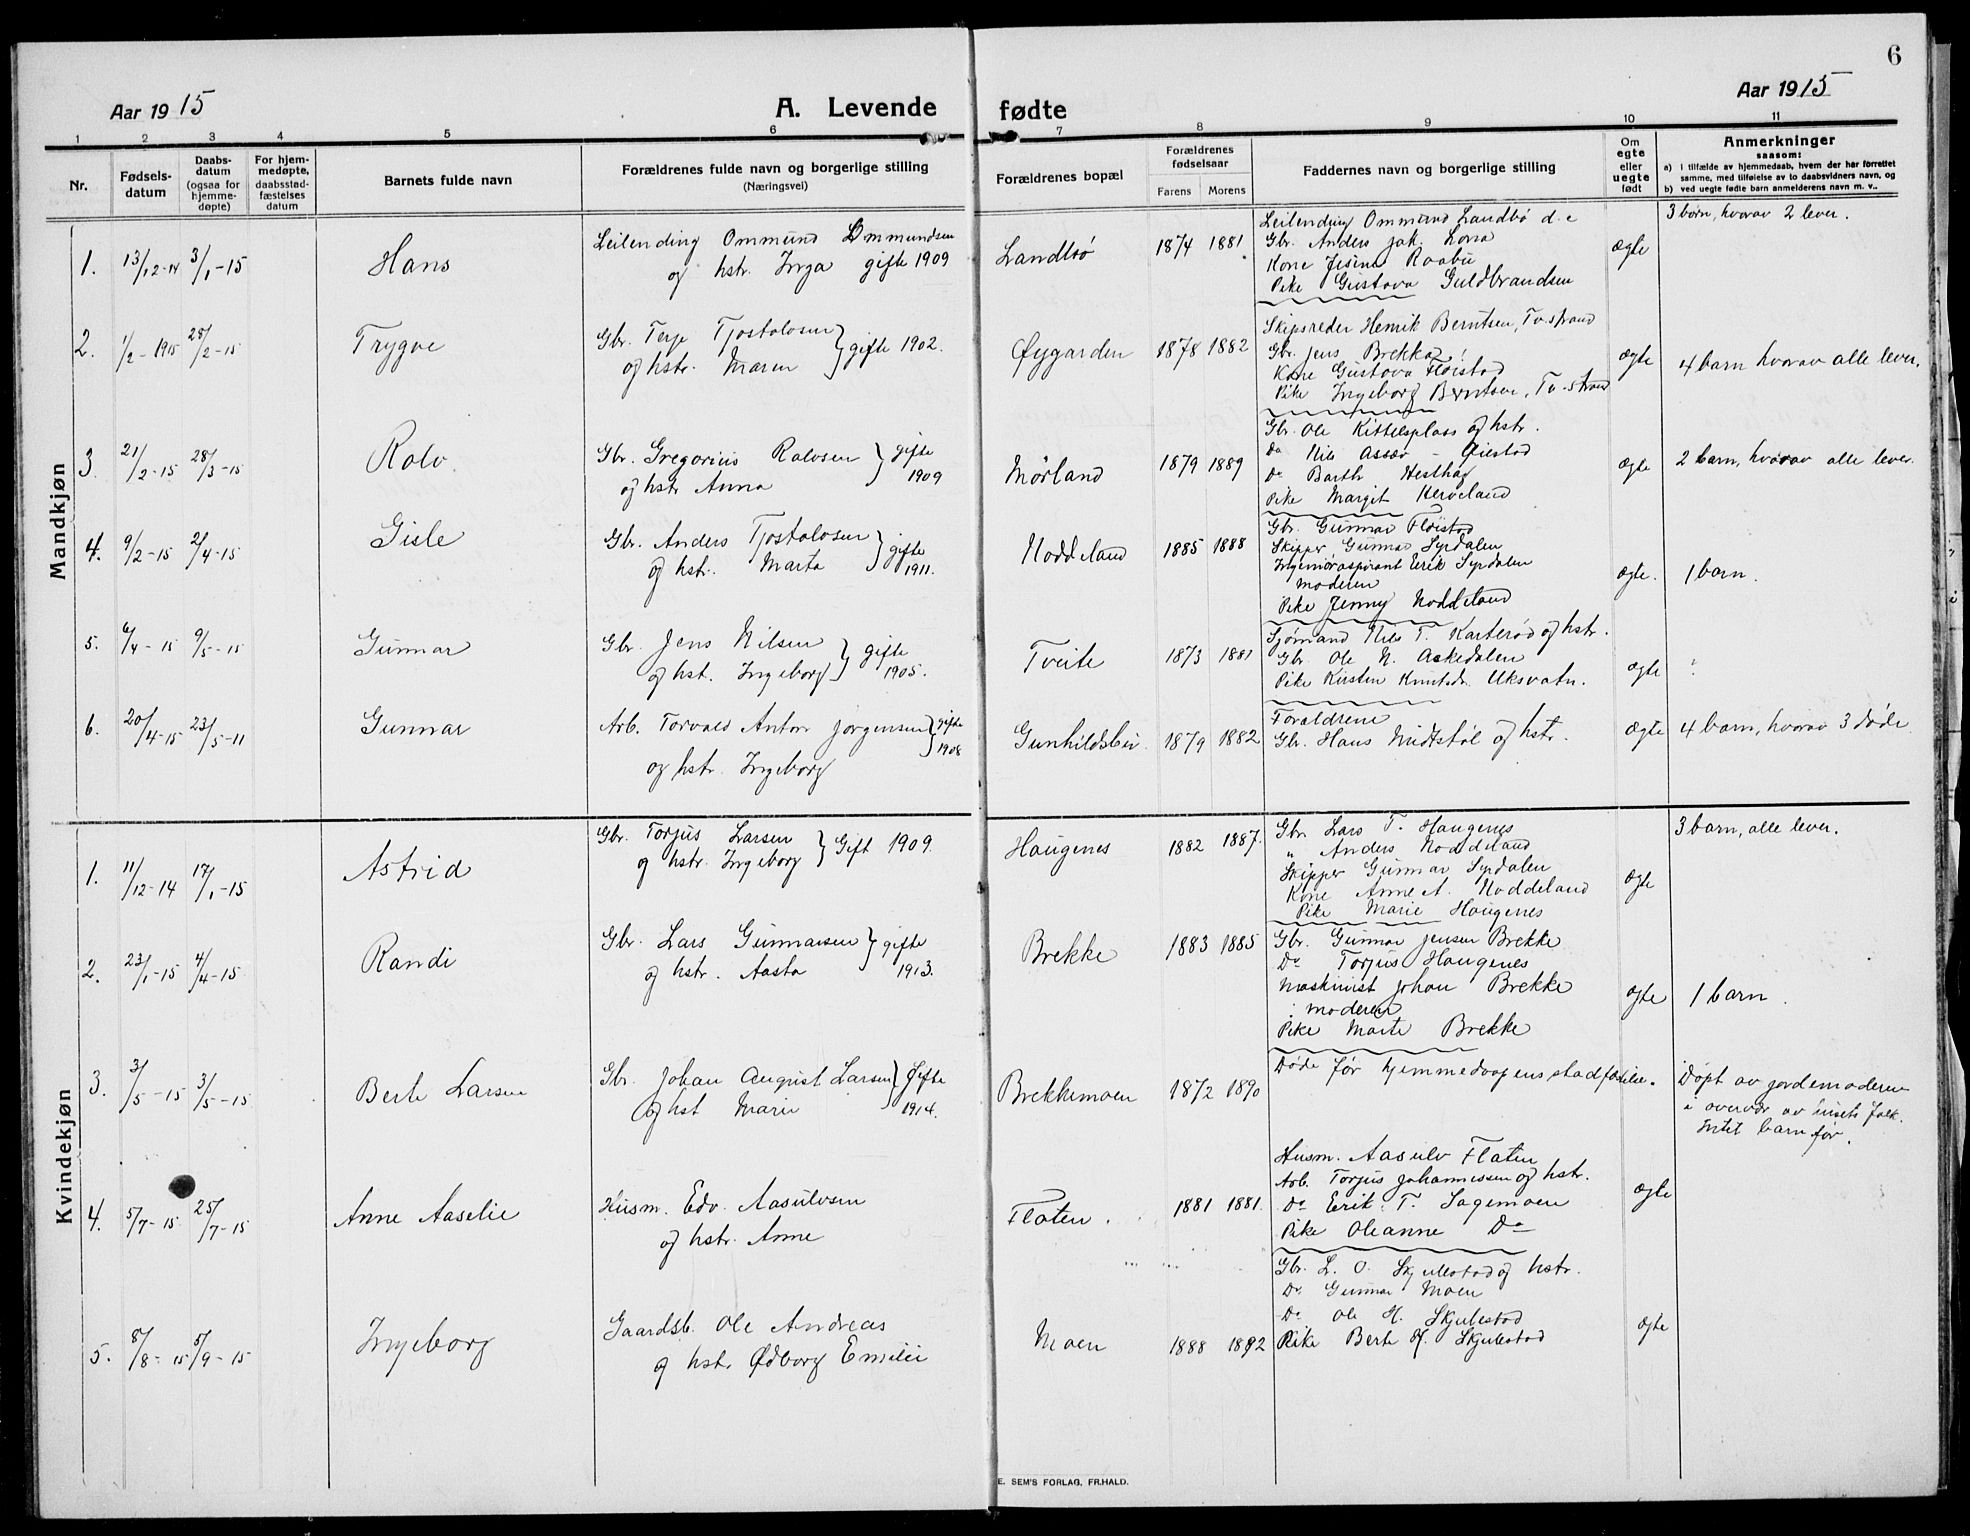 6
Aar 1915
A. Levende fødte
Aar 1915
1 2 3 4 5 6 7 8 9 10 11
Nr.
Fødsels-
datum
Daabs-
datum
(ogsaa for
hjemme-
døpte)
For hjem-
medøpte,
daabsstad-
fæstelses
datum
Barnets fulde navn
Forældrenes fulde navn og borgerlige stilling
(Næringsvei)
Forældrenes bopæl
Forældrenes
fødselsaar
Farens Morens
Faddernes navn og borgerlige stilling
Om
egte
eller
uegte
født
Anmerkninger
saasom:
a) I tilfælde av hjemmedaab, hvem der har forrettet
samme, med tilføielse av to daabsvidners navn, og
b) ved uegte fødte barn anmelderens navn m. v..
Mandkjøn
1. 13/12-14 3/1-15 Hans
Leilending Ommund Ommundsen
og hstr. Inga gifte 1909
Landbø 1874 1881
Leilending Ommund Landbø d.e
Gbr. Anders Jak.
Kone Raabu
Pike Gustava Guldbrandsen
ægte
3 børn, hvorav 2 lever.
2. 1/2-1915 28/2-15 Trygve
Gbr. Terje Tjostolvsen
og hstr. Maren gifte 1902.
Øygarden 1878 1882
Skipsreder Henrik Berntsen, Tv.strand
Gbr. Jens Brekka
Kone Gustava Fløistad
Pike Ingeborg Berntsen, Tv-strand
ægte
4 barn hvorav alle lever.
3. 21/2-15 28/3-15 Rolv.
Gbr. Gregorius Rolvsen gifte
og hstr Anna 1909
Mørland 1879 1889
Gbr. Ole Kittelsplass og hstr.
Do Nils Assev - Gilestad
Do Barth Hesthag
Pike Margit Herveland
ægte
2 barn, hvorav alle lever.
4. 9/2-15 2/4-15 Gisle
Gbr. Anders Tjostolvsen gifte
og hstr. Marta 1911.
Noddeland 1885 1888
Gbr. Gunnar Fløistad
Skipper Gunnar Syrdalen
Ingeniøraspirant Eerik Syrdalen
Moderen
Pike Jenny Noddeland
ægte.
1 barn.
5. 6/4-15 9/5-15 Gunnar
Gbr. Jens Nilsen gifte
og hst. Ingeborg 1905.
Tveite 1873 1881
Sjømand Nils T. Karterød og hstr.
Gbr. Ole N. Askedalen
Pike Kirsten Knutsdr. Uksvatn.
ægte
6. 20/4-15 23/5-11 Gunnar
Arb. Torvald Anton Jørgensen gifte
og hstr. Ingeborg 1908
Gunhildsbu 1879 1882
Foraldrene
Gbr. Hans Midtstøl og hstr.
ægte
4 barn, hvorav 3 døde
Kvindekjøn
1. 11/12-14 17/1-15 Astrid
Gbr. Torjus Larsen
og hstr. Ingeborg Gift 1909.
Haugenes 1882 1887.
Gbr Lars T. Haugenes
" Anders Noddeland
Skipper Gunnar Syrdalen
Kone Anne A. Noddeland
Pike Marie Haugenes
ægte
3 barn, alle lever.
2. 23/1-15 4/4-15 Randi
Gbr. Lars Gunnarsen gifte
og hstr. Aasta 1913.
Brekke 1883 1885
Gbr. Gunnar Jensen Brekke
Do Torjus Haugenes
Maskinist Johan Brekke
Moderen
Pike Marte Brekke
ægte
1 barn.
3. 3/5-15 3/5-15 Berte Larsen
Gbr. Johan August Larsen Gifte
og hst Marie 1914.
Brekkemoen 1872 1890
Døde før hjemmedaapens stadfæstelse.
Døpt av jordemoderen
i overvær av husets folk.
Intet barn før.
4. 5/7-15 25/7-15 Anne Aaselie
Husm. Edv. Aasulvsen
og hstr. Anne
Flaten. 1881 1881.
Husm. Aasulv Flaten
Arb. Torjus Johannessen og hstr.
Do Eerik T. Sagemoen
Pike Oleanne Do
ægte
5. 8/8-15 5/9-15 Ingeborg
Gaardsb. Ole Andreas
og hstr Ødborg Emilie
Moen 1888 1892
Gbr. L. O. Skjulestad og hstr.
Do Gunnar Moen
Do Ole H. Skjulestad
Pike Berte H. Skjulestad
ægte
E. SEM'S FORLAG, FR.HALD.